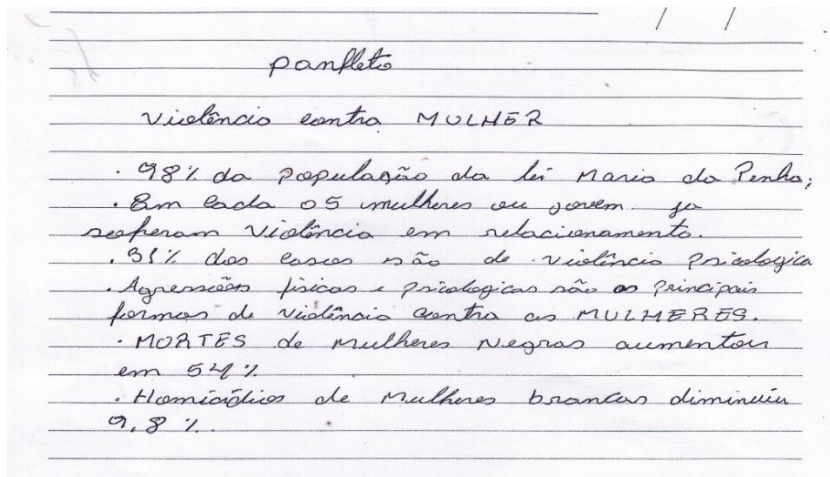 panfleto
Violência contra MULHER
. 98% da população da lei Maria da Penha;
. Em cada 05 mulheres ou jovem ja
soferam Violência em relacionamento.
. 31% dos casos não de violência Psicologica
. Agressões físicas e psicologicas são as principais
formas de Violência contra as MULHERES.
. MORTES de mulheres Negras aumentou
em 54%
. Homicídios de Mulheres brancas diminuiu
9,8%.